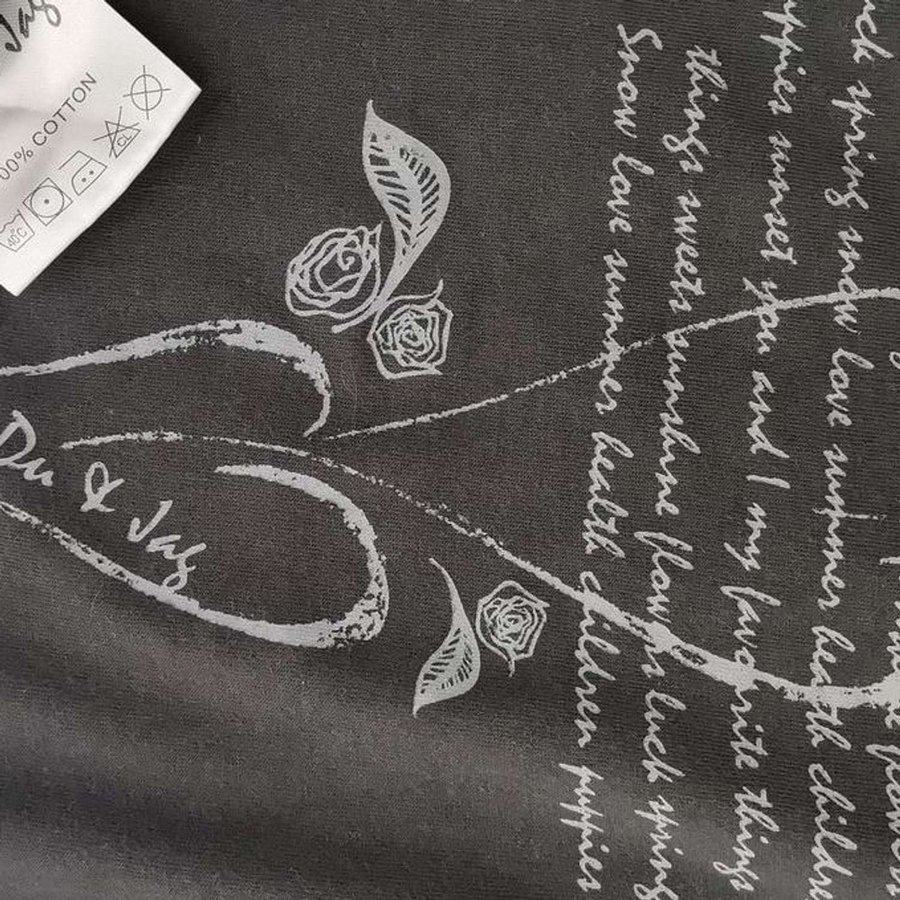 Jag
00% COTTON
40°C
Du & Jag
flowers
uck spring snow love summer health childre
uppies sunset you and I my favorite things
things sweets sunshine flowers luck spring
Snow love summer health children puppies